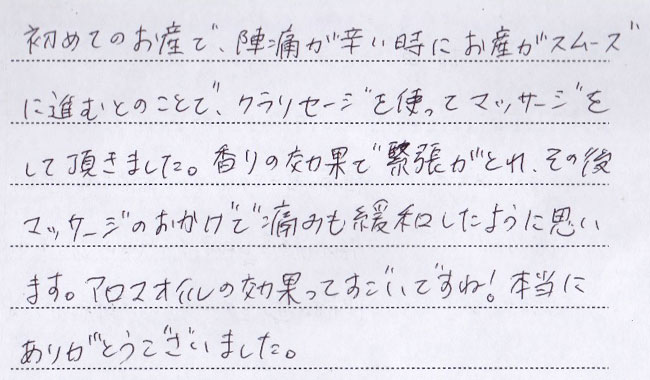 初めてのお産で、陣痛が辛い時にお産がスムーズ
に進むとのことで、クラリセージを使ってマッサージを
して頂きました。香りの効果で緊張がとれ、その後
マッサージのおかげで痛みも緩和したように思い
ます。アロマオイルの効果ってすごいですね！本当に
ありがとうございました。